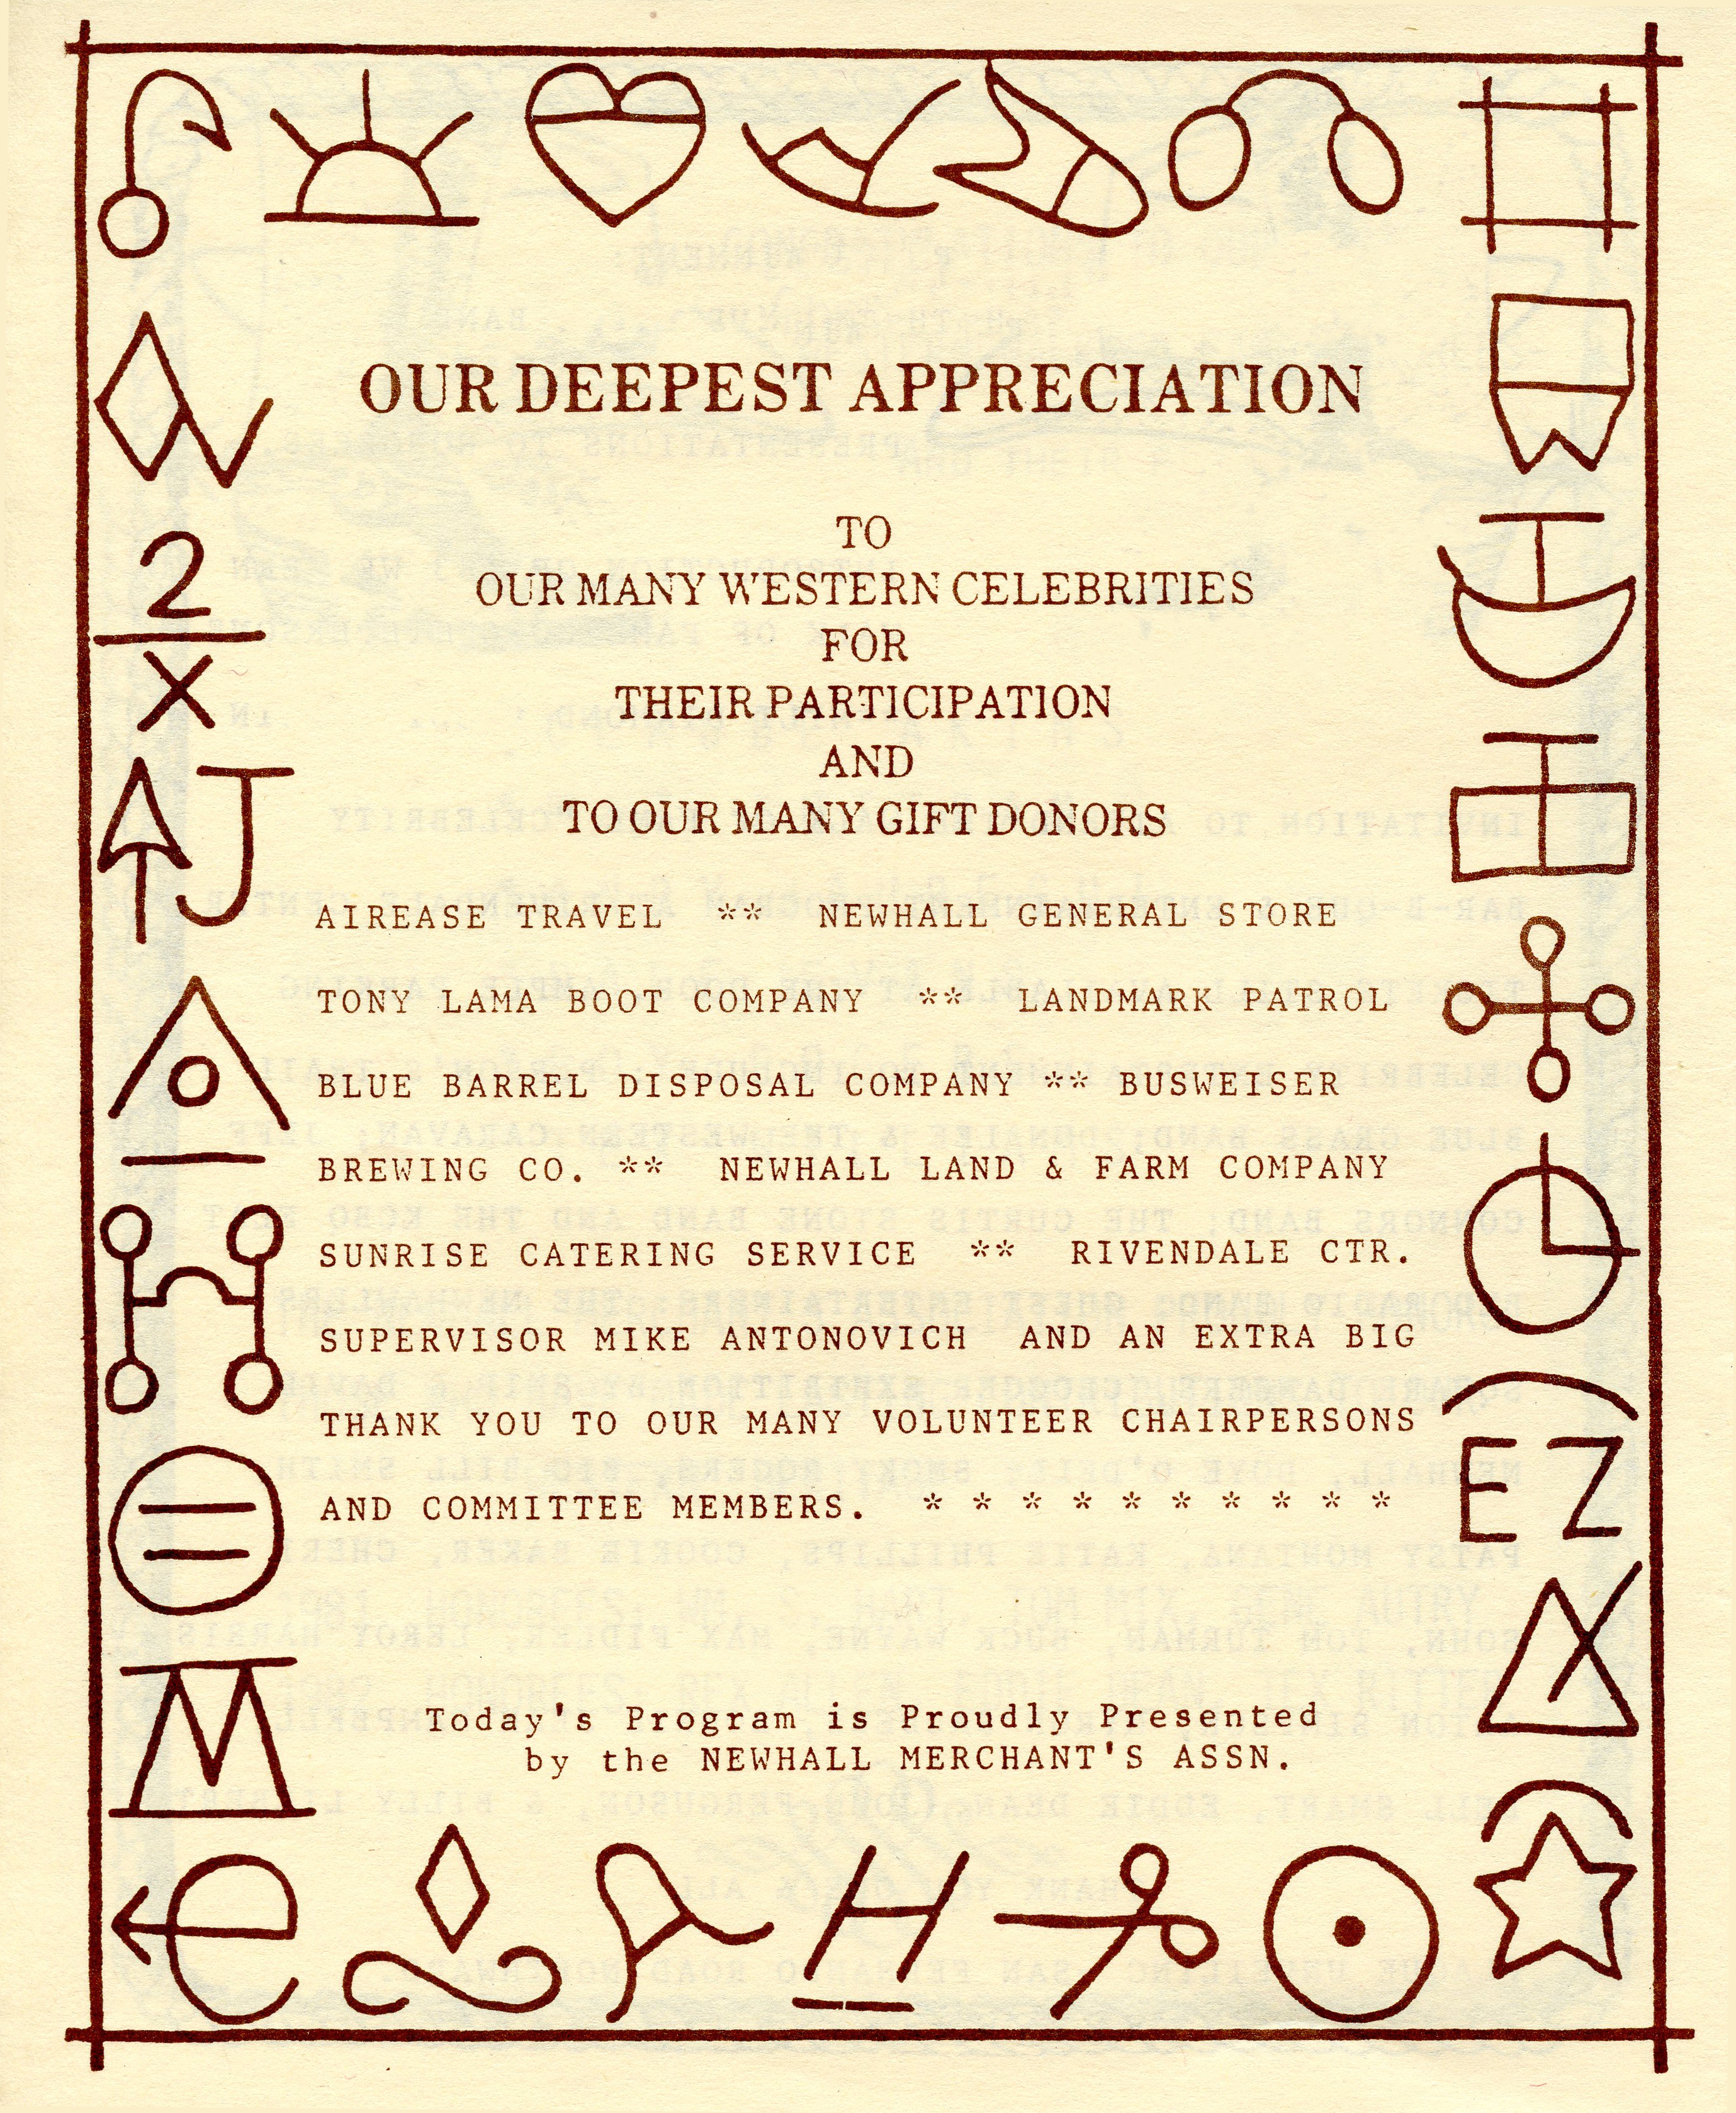 OUR DEEPEST APPRECIATION
TO
OUR MANY WESTERN CELEBRITIES
FOR
THEIR PARTICIPATION
AND
TO OUR MANY GIFT DONORS
AIREASE TRAVEL ** NEWHALL GENERAL STORE
TONY LAMA BOOT COMPANY ** LANDMARK PATROL
BLUE BARREL DISPOSAL COMPANY ** BUSWEISER
BREWING CO. ** NEWHALL LAND & FARM COMPANY
SUNRISE CATERING SERVICE ** RIVENDALE CTR.
SUPERVISOR MIKE ANTONOVICH AND AN EXTRA BIG
THANK YOU TO OUR MANY VOLUNTEER CHAIRPERSONS
AND COMMITTEE MEMBERS. * * * * * * * * * *
Today's Program is Proudly Presented
by the NEWHALL MERCHANT'S ASSN.
2
X
J
M
E Z
H